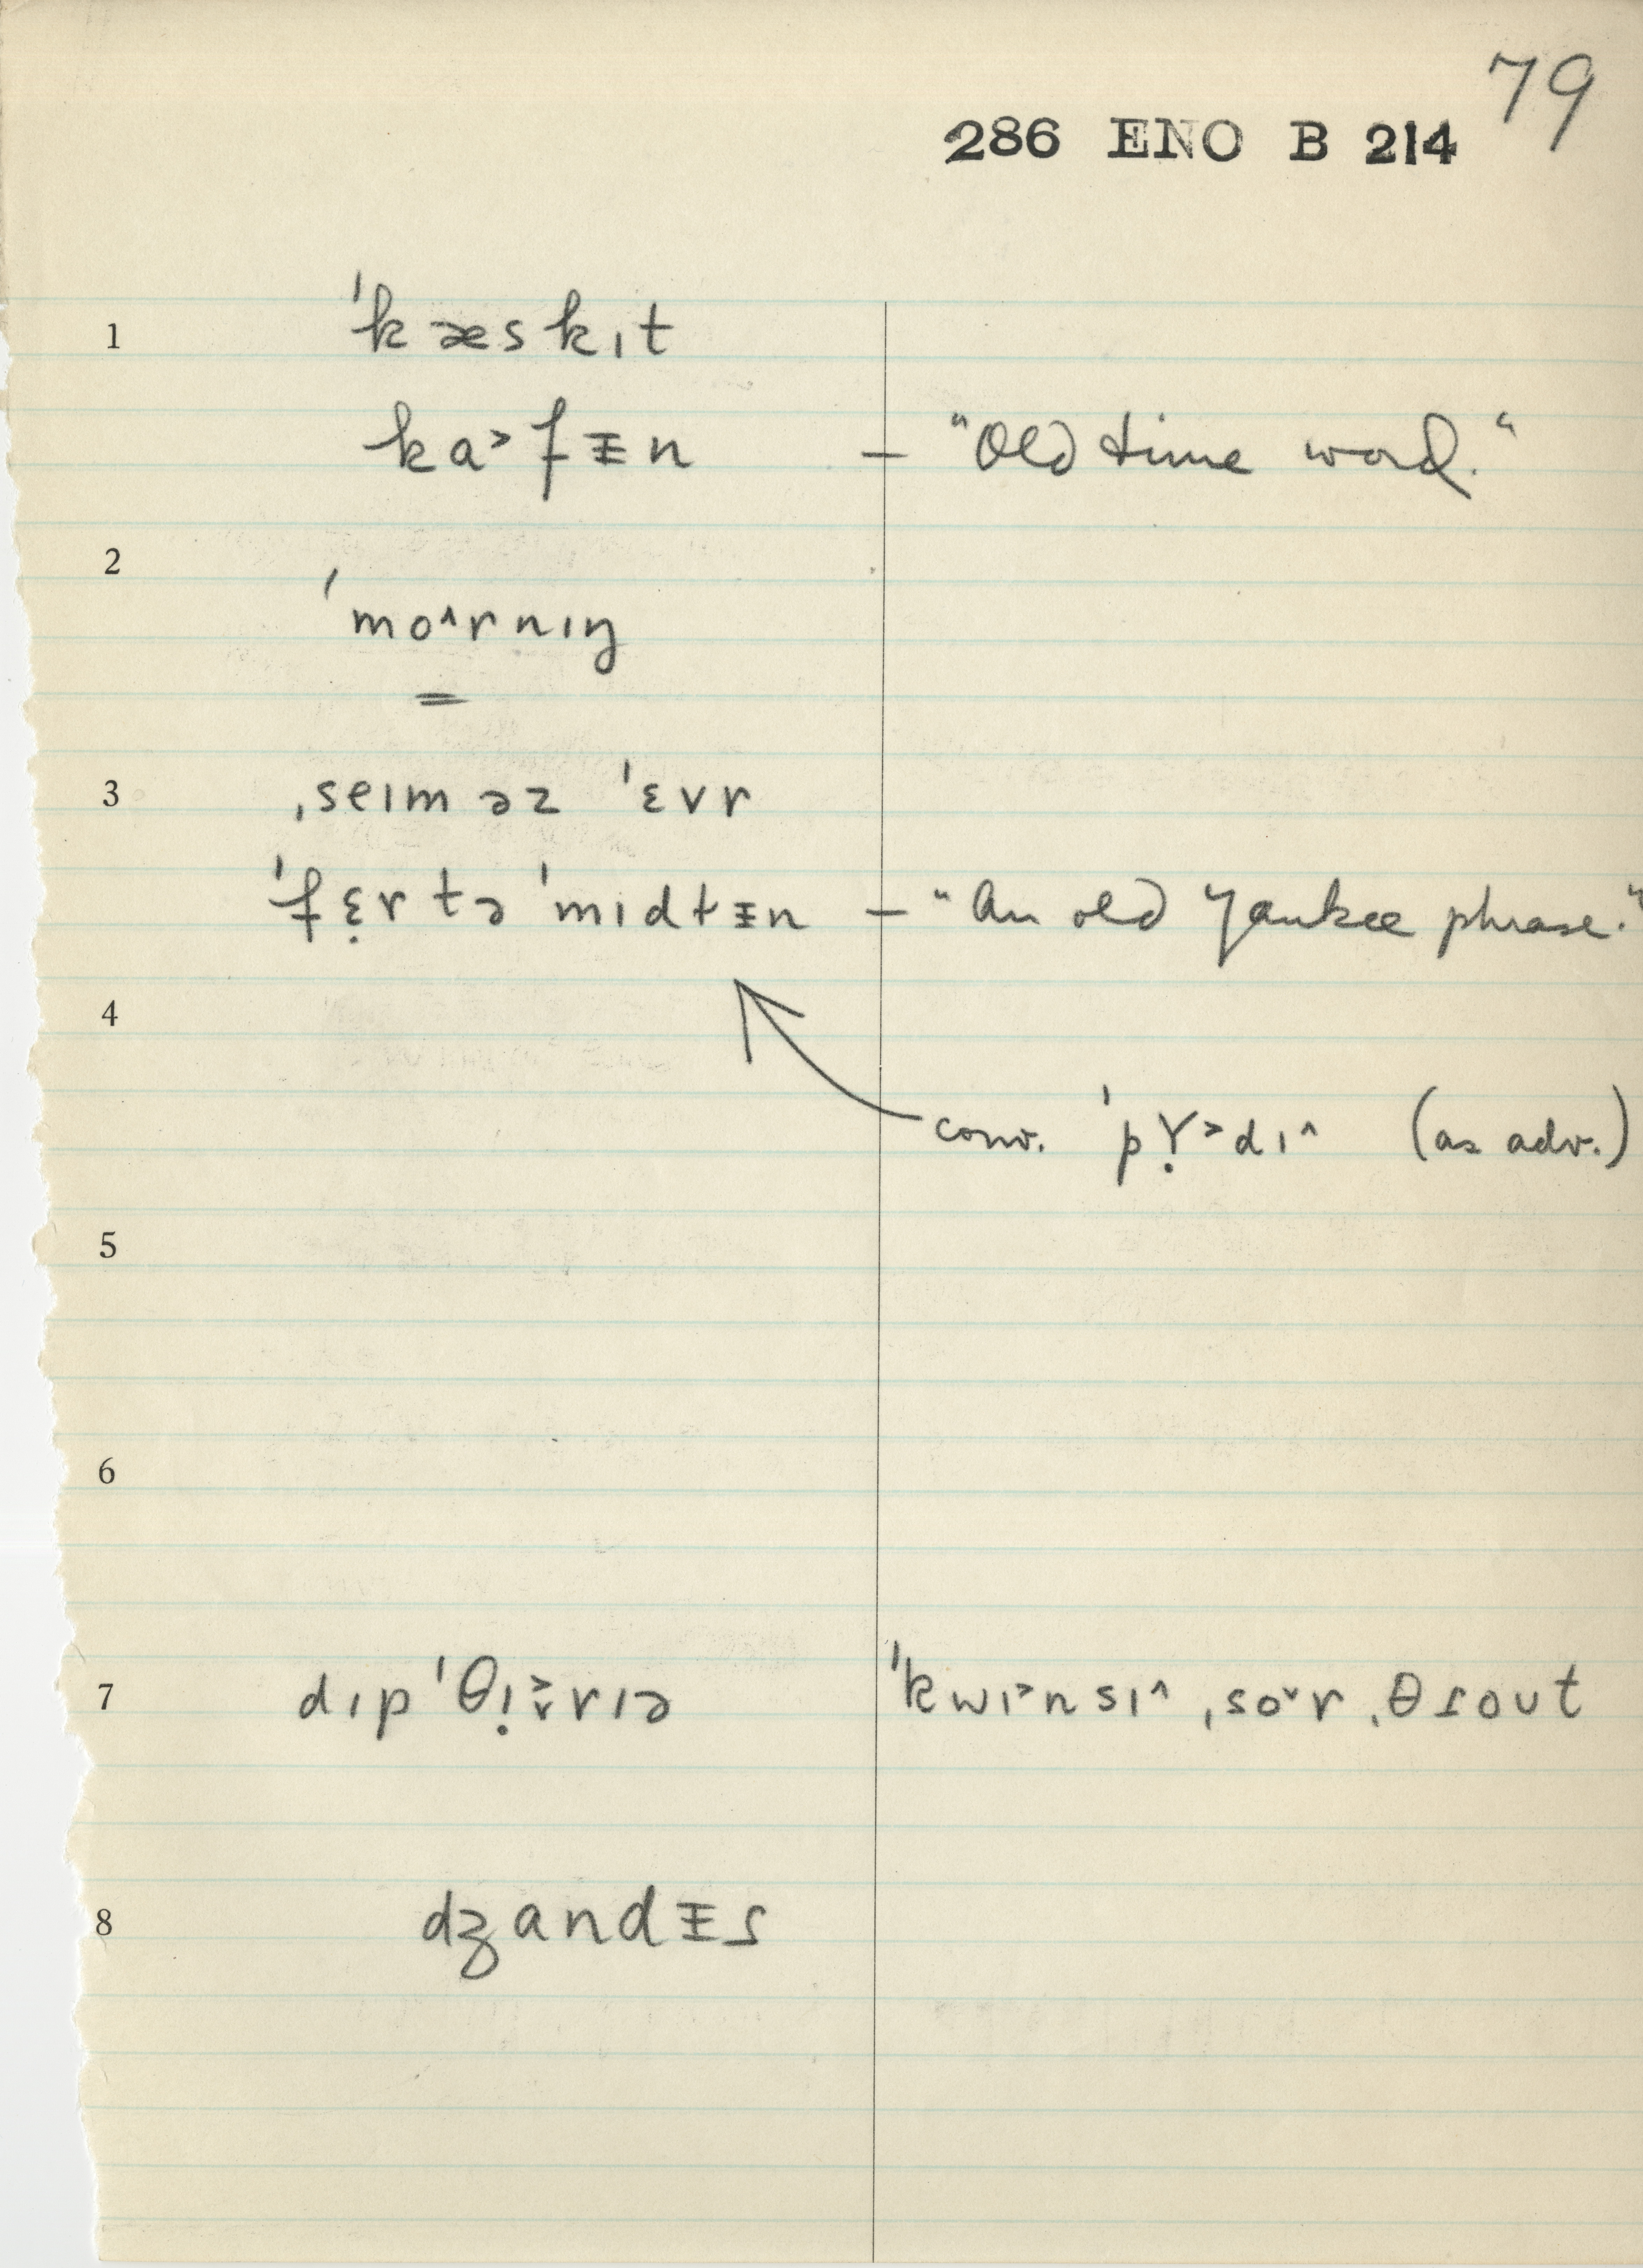 79
286 ENO B 214
1 ˈkæskɪt
ka˃fᵻn – "Old time word."
2 ˈmo˄rnɪŋ
3 ˌseɪm əz ˈɛvr
ˈfɛ̣r tə ˈmɪdlᵻn – "An old Yankee phrase."
4
conv. ˈpɤ̣˃dɪ˄ (as adv.)
5
6
7 dɪpˈθɪ̣˅˃rɪə ˈkwɪ˃nsɪ˄ ˌso˅r ˌθɾoʊt
8 dʒandᵻs